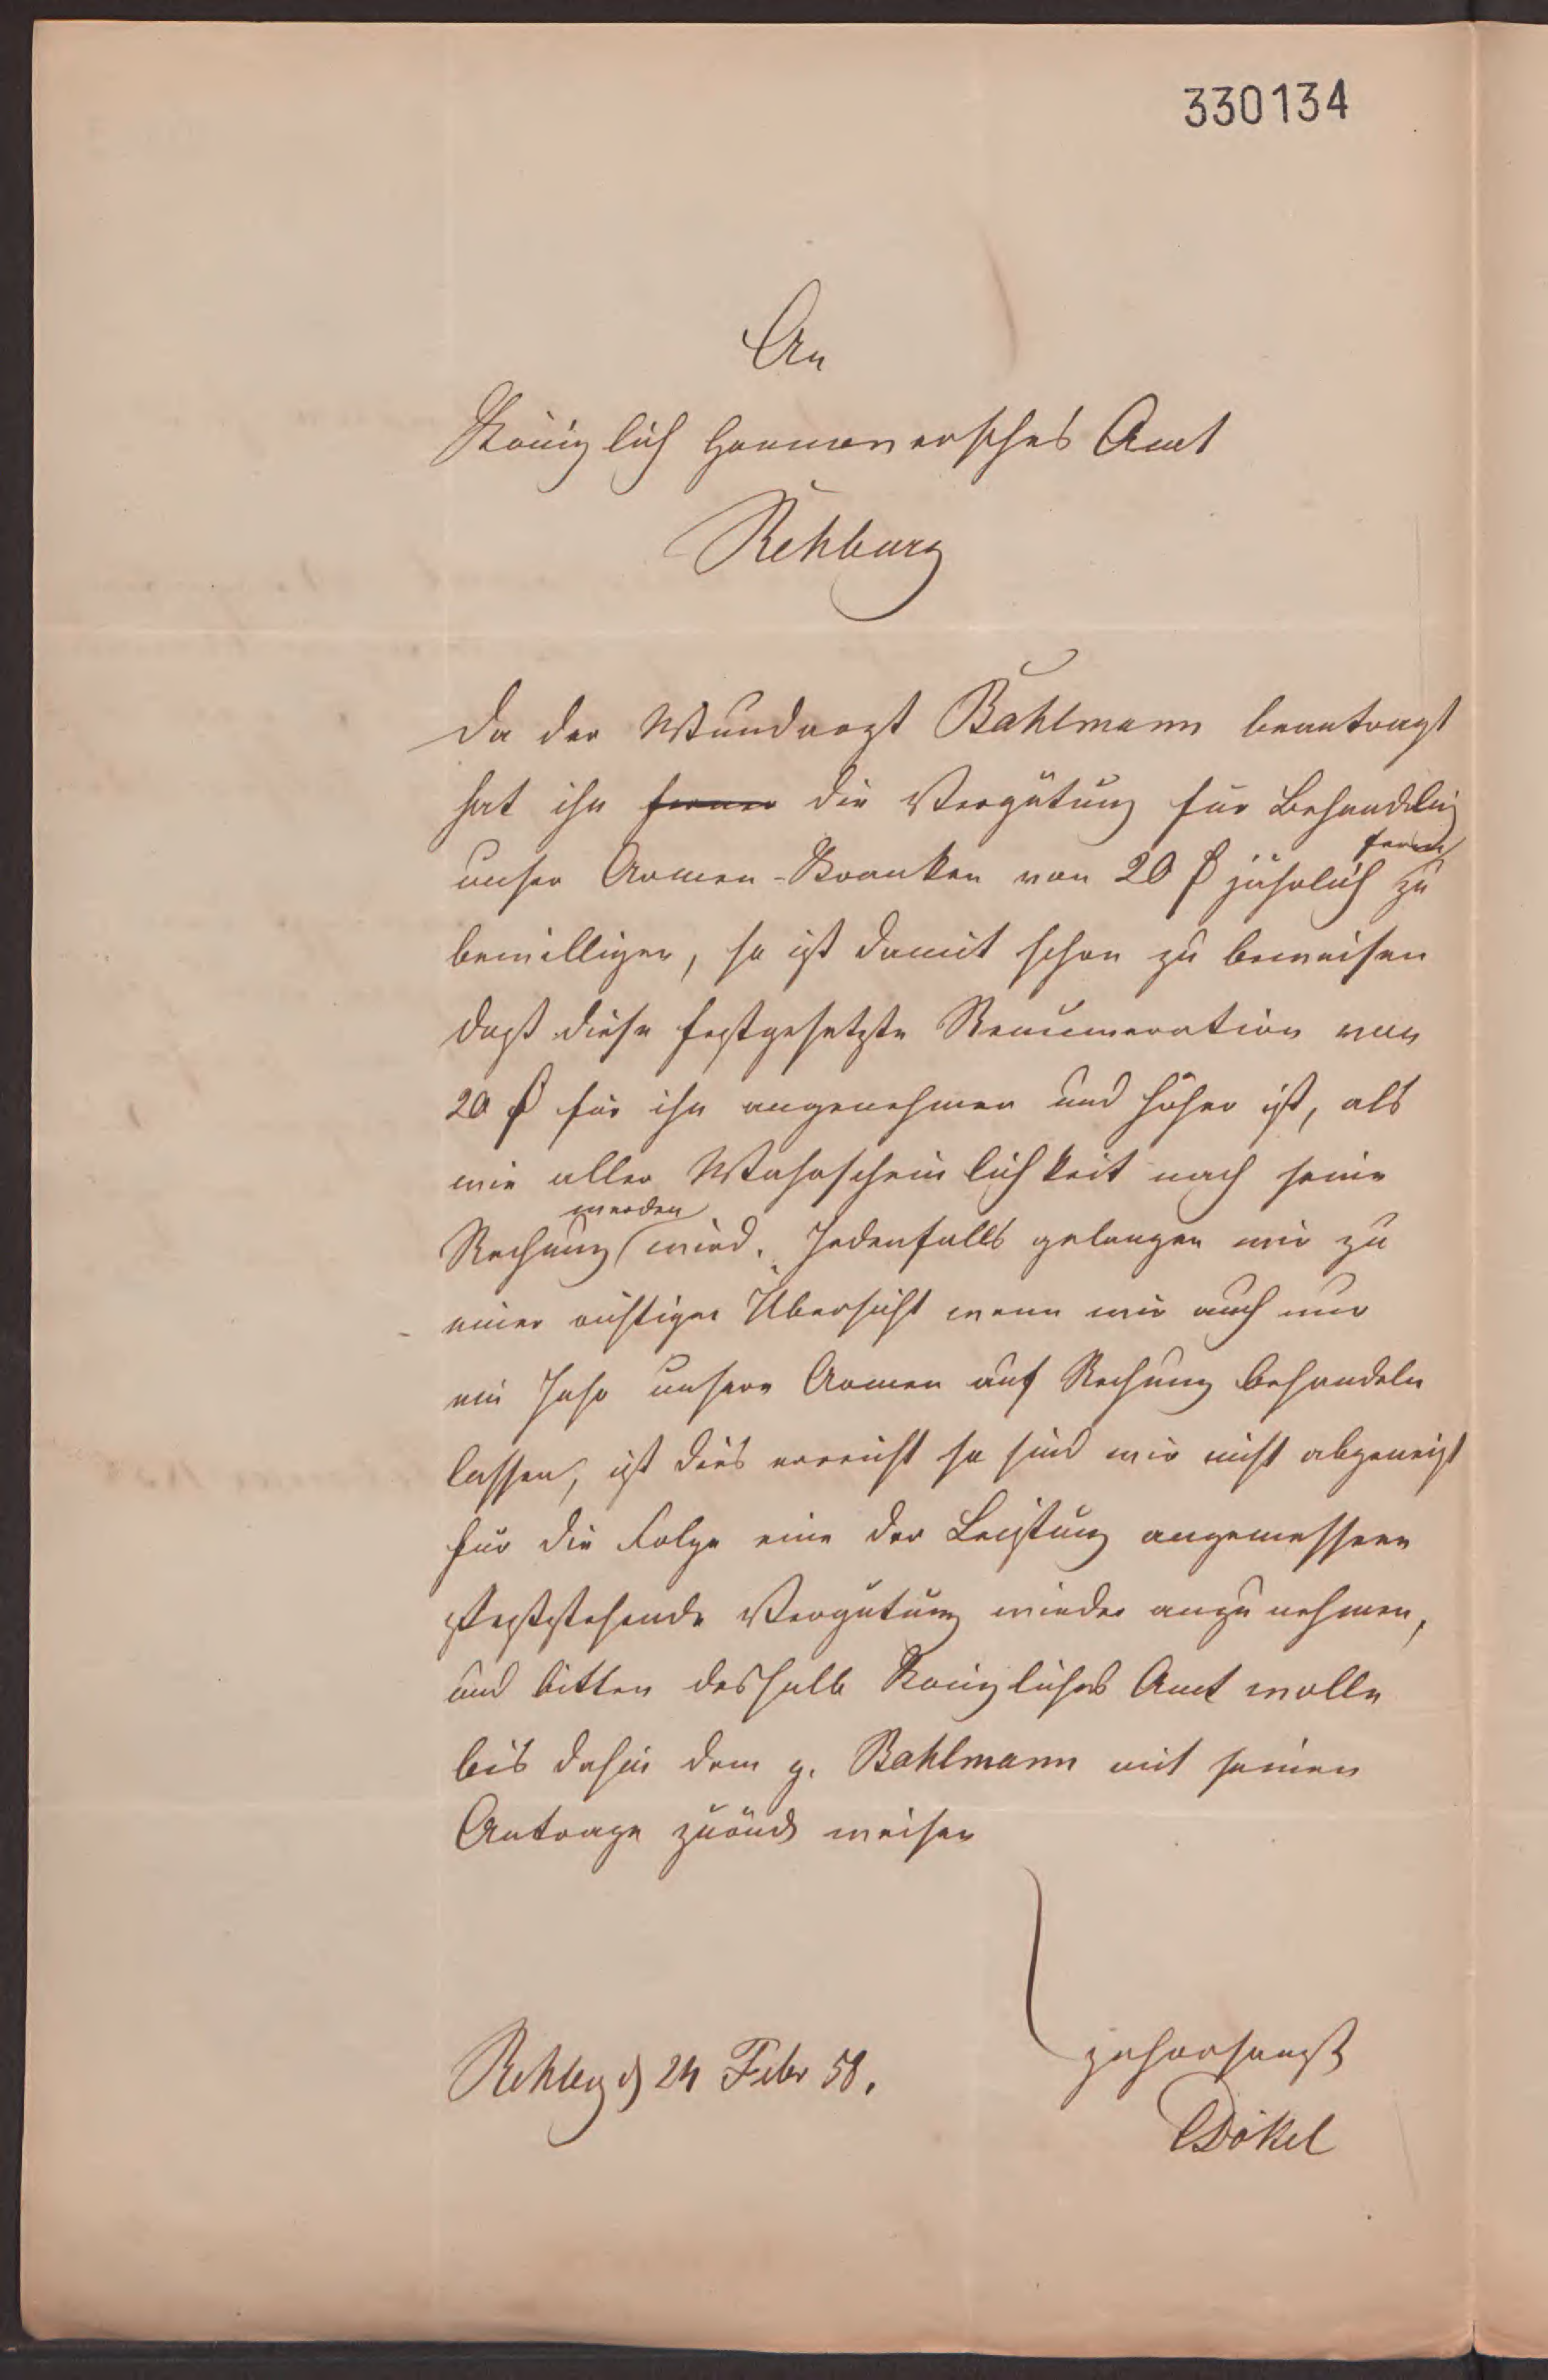 330134
An
Königlich Hannoversches Amt
Rehburg
Da der Wundarzt Bahlmann beantragt
hat ihn ferner die Vergütung für Behandlung
unser Armen-Kranken von 20 ₰ jährlich zu
ferner
bewilligen, so ist damit schon zu beweisen
daß diese festgesetzte Renumeration von
20 ₰ für ihn angenehmer und höher ist, als
wie aller Wahrscheinlichkeit nach seine
werden
Rechnung wird. Jedenfalls gelangen wir zu
einer richtigen Übersicht wenn wir auch nur
ein Jahr unsere Armen auf Rechnung behandeln
lassen, ist dies erreicht so sind wir nicht abgeneigt
für die Folge eine der Leistung angemessene
feststehende Vergütung wieder anzunehmen,
und bitten deshalb Königliches Amt wolle
bis dahin dem g. Bahlmann mit seinen
Antrage zurück weisen
gehorsamst
Rehbrg d 24 Febr 58.
Dökel